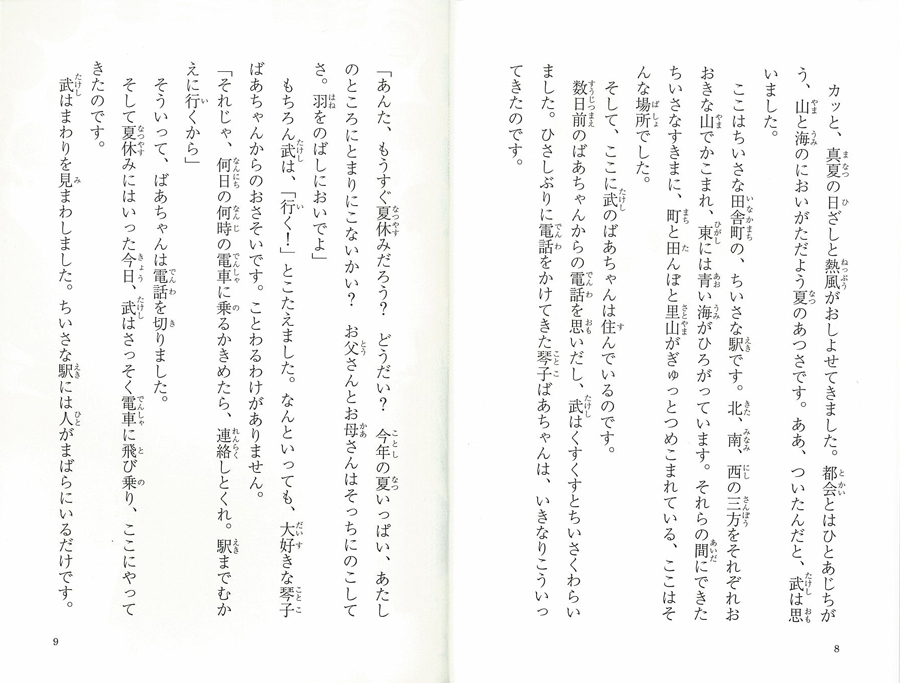 カッと、真夏の日ざしと熱風がおしよせてきました。都会とはひとあじちが
う、山と海のにおいがただよう夏のあつさです。ああ、ついたんだと、武は思
いました。
ここはちいさな田舎町の、ちいさな駅です。北、南、西の三方をそれぞれお
おきな山でかこまれ、東には青い海がひろがっています。それらの間にできた
ちいさなすきまに、町と田んぼと里山がぎゅっとつめこまれている、ここはそ
んな場所でした。
そして、ここに武のばあちゃんは住んでいるのです。
数日前のばあちゃんからの電話を思いだし、武はくすくすとちいさくわらい
ました。ひさしぶりに電話をかけてきた琴子ばあちゃんは、いきなりこういっ
てきたのです。
8
「あんた、もうすぐ夏休みだろう？　どうだい？　今年の夏いっぱい、あたし
のところにとまりにこないかい？　お父さんとお母さんはそっちにのこして
さ。羽をのばしにおいでよ」
もちろん武は、「行く！」とこたえました。なんといっても、大好きな琴子
ばあちゃんからのおさそいです。ことわるわけがありません。
「それじゃ、何日の何時の電車に乗るかきめたら、連絡しとくれ。駅までむか
えに行くから」
そういって、ばあちゃんは電話を切りました。
そして夏休みにはいった今日、武はさっそく電車に飛び乗り、ここにやって
きたのです。
武はまわりを見まわしました。ちいさな駅には人がまばらにいるだけです。
9